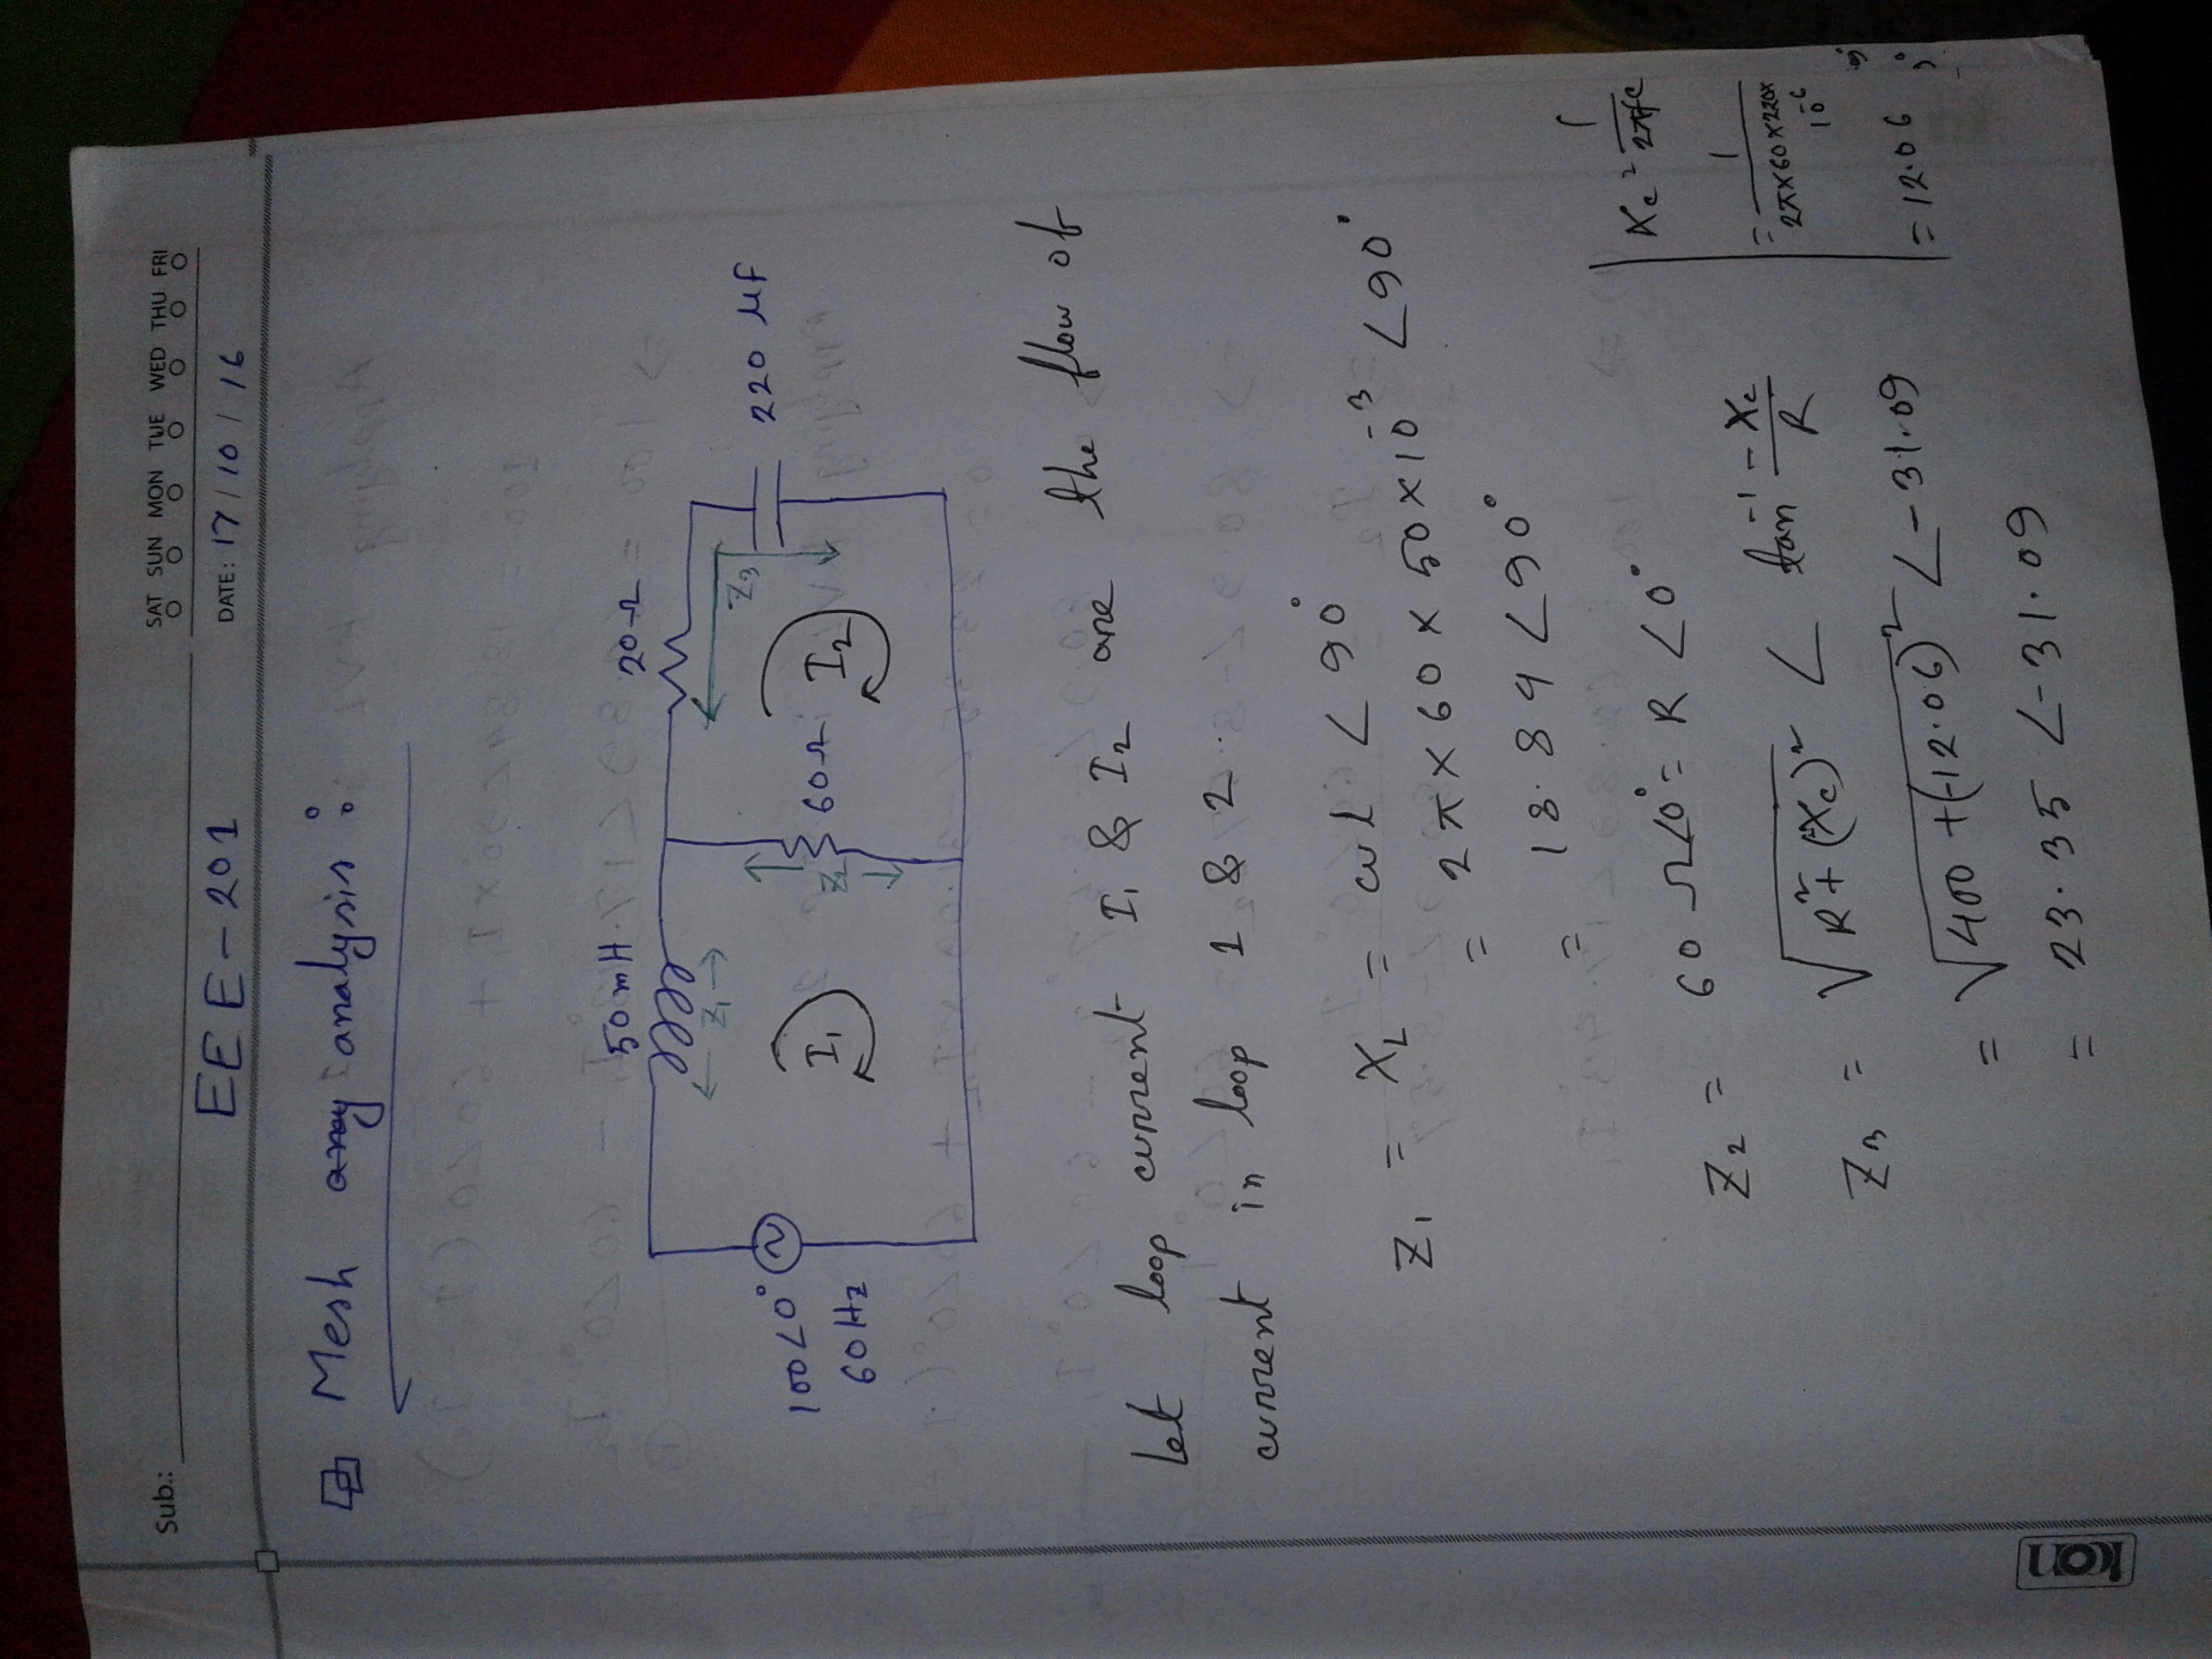 Sub.:
SAT SUN MON TUE WED THU FRI
EEE-201
DATE: 17/10/16
Mesh analysis:
50mH
20Ω
Z₁
Z₃
220 μF
100∠0°
60Hz
I₁
Z₂
60Ω
I₂
Let loop current I₁ & I₂ are the flow of
current in loop 1 & 2.
Z₁ = X_L = ωL ∠90°
= 2π×60×50×10⁻³ ∠90°
= 18.84∠90°
Z₂ = 60 Ω∠0° = R∠0°
Z₃ = √(R²+(-X_c)²) ∠ tan⁻¹ -X_c/R
= √(400+(-12.06)²) ∠-31.09
= 23.35 ∠-31.09
X_c = 1/2πfc
= 1/2π×60×220×10⁻⁶
= 12.06
ion